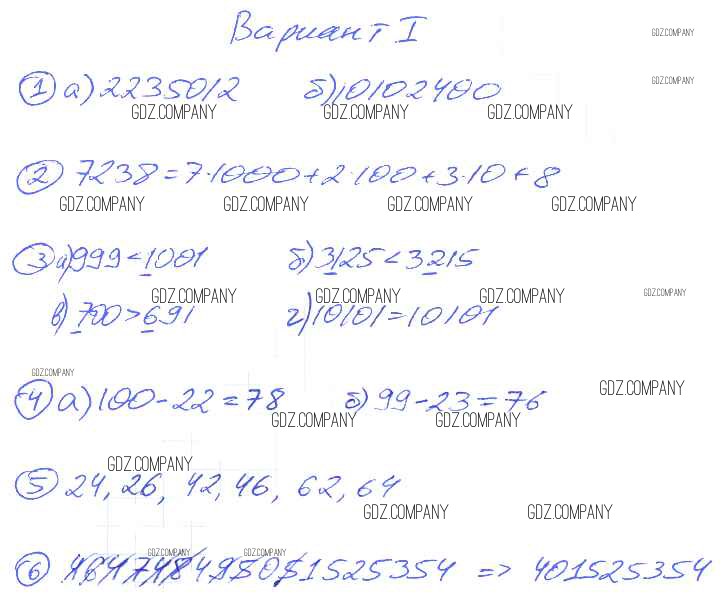 Вариант I
GDZ.COMPANY
① а) 2235012 б) 10102400
GDZ.COMPANY
GDZ.COMPANY GDZ.COMPANY GDZ.COMPANY
② 7238 = 7·1000 + 2·100 + 3·10 + 8
GDZ.COMPANY GDZ.COMPANY GDZ.COMPANY GDZ.COMPANY
③ а) 999 < 1001 б) 3125 < 3215
GDZ.COMPANY GDZ.COMPANY GDZ.COMPANY GDZ.COMPANY
в) 700 > 691 г) 10101 = 10101
GDZ.COMPANY
④ а) 100 - 22 = 78 б) 99 - 23 = 76
GDZ.COMPANY
GDZ.COMPANY GDZ.COMPANY
GDZ.COMPANY
⑤ 24, 26, 42, 46, 62, 64
GDZ.COMPANY GDZ.COMPANY
GDZ.COMPANY GDZ.COMPANY
⑥ 1525354 => 401525354